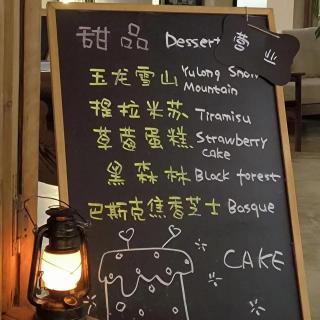 甜品 Dessert 营业
玉龙雪山 Yulong Snow
Mountain
提拉米苏 Tiramisu
草莓蛋糕 Strawberry
cake
黑森林 Black forest
巴斯克焦香芝士 Basque
CAKE